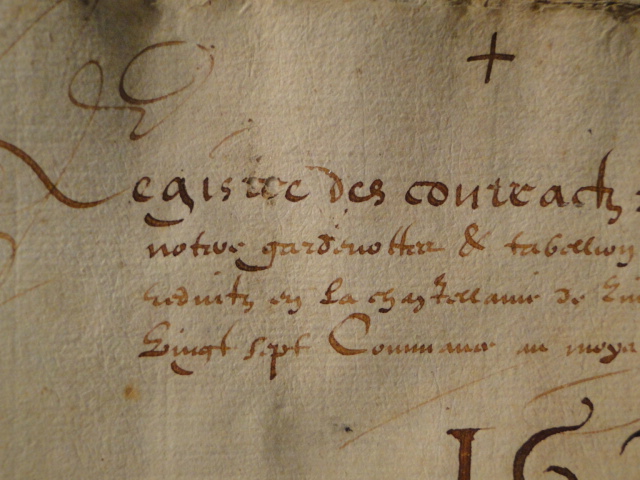 +
Registre des contractz
notere gardenottes & tabellion
reduitz en la chastellanie de
Vingt sept Commancé au moys
16